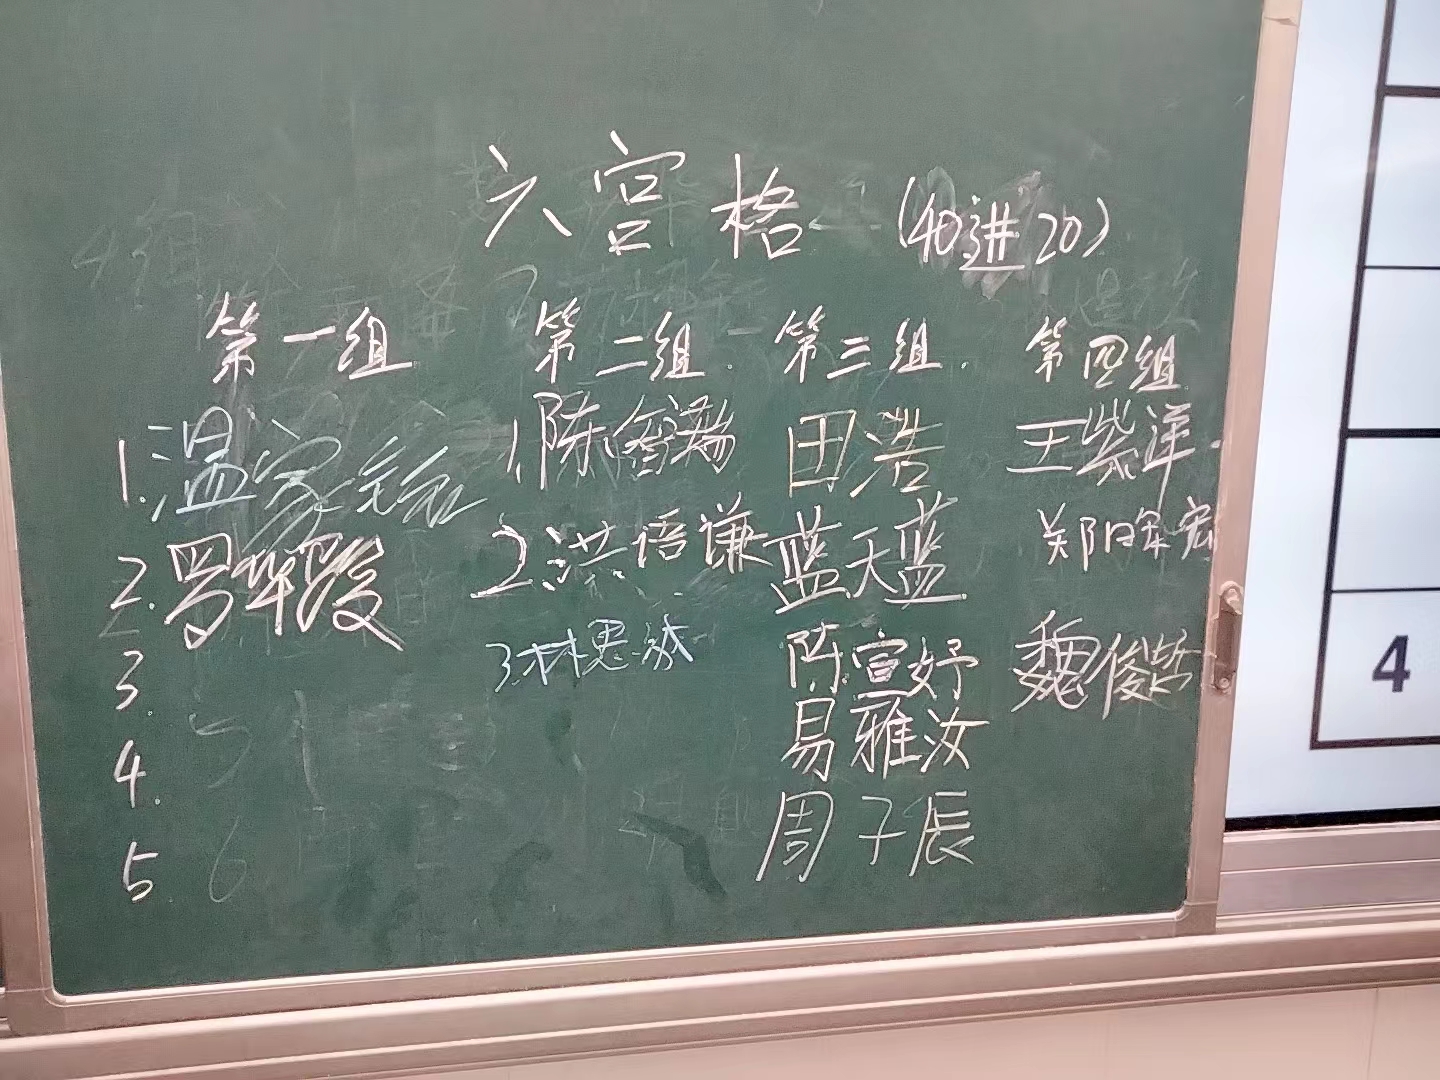 六宫格 (40进20)
第一组 第二组 第三组 第四组
1.温家 1.陈 田浩 王紫洋
2. 2.洪语谦 蓝天蓝 郑
3. 3.林思 陈宣妤 魏俊哲
4. 易雅汝
5 周子辰
4